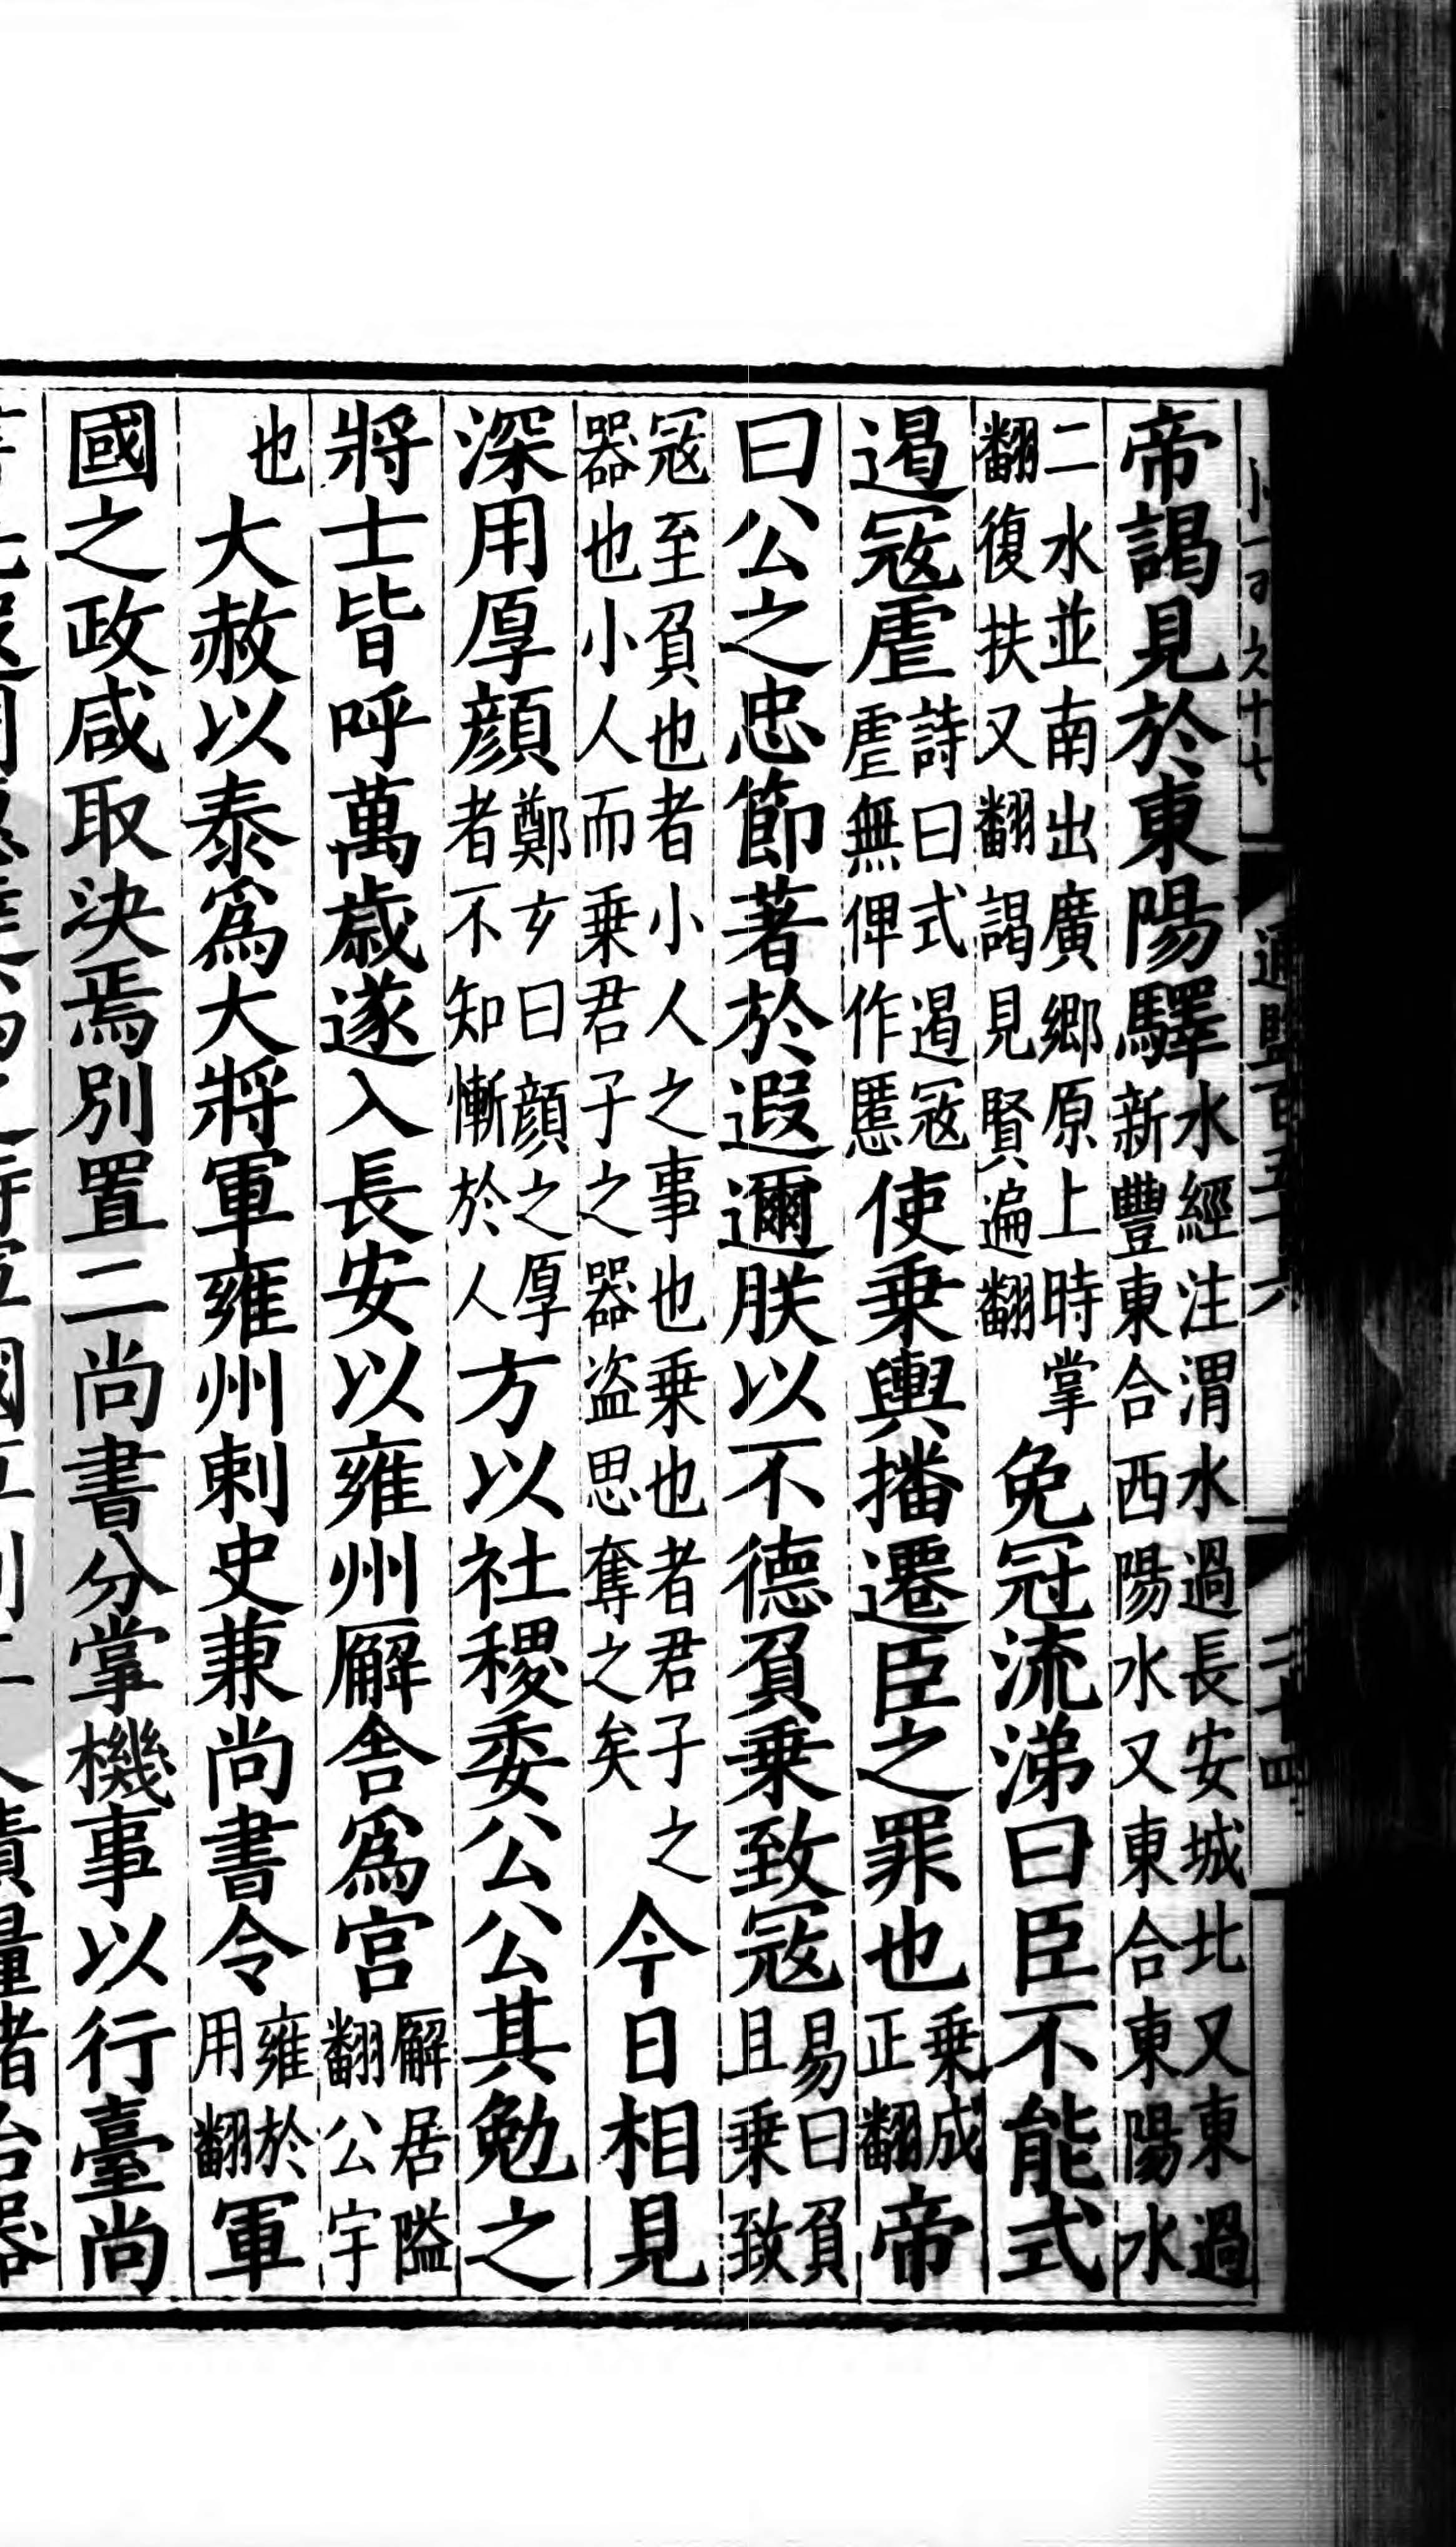 通鑑百五十六
二十四
帝謁見於東陽驛水經注渭水過長安城北又東過新豐東合西陽水又東合東陽水
二水並南出廣鄉原上時掌翻復扶又翻謁見賢遍翻免冠流涕曰臣不能式
遏寇虐詩曰式遏寇虐無俾作慝使乗輿播遷臣之罪也乗成正翻帝
曰公之忠節著於遐邇朕以不德負乗致寇易曰負且乗致
寇至負也者小人之事也乗也者君子之器也小人而乗君子之器盗思奪之矣今日相見
深用厚顔鄭玄曰顔之厚者不知慚於人方以社稷委公公其勉之
將士皆呼萬歳遂入長安以雍州廨舍為宫廨居隘翻公宇
也大赦以泰為大將軍雍州刺史兼尚書令雍於用翻軍
國之政咸取決焉别置二尚書分掌機事以行臺尚